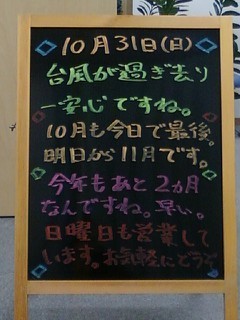 10月31日(日)
台風が過ぎ去り
一安心ですね。
10月も今日で最後。
明日から11月です。
今年もあと2カ月
なんですね。早い。
日曜日も営業して
います。お気軽にどうぞ